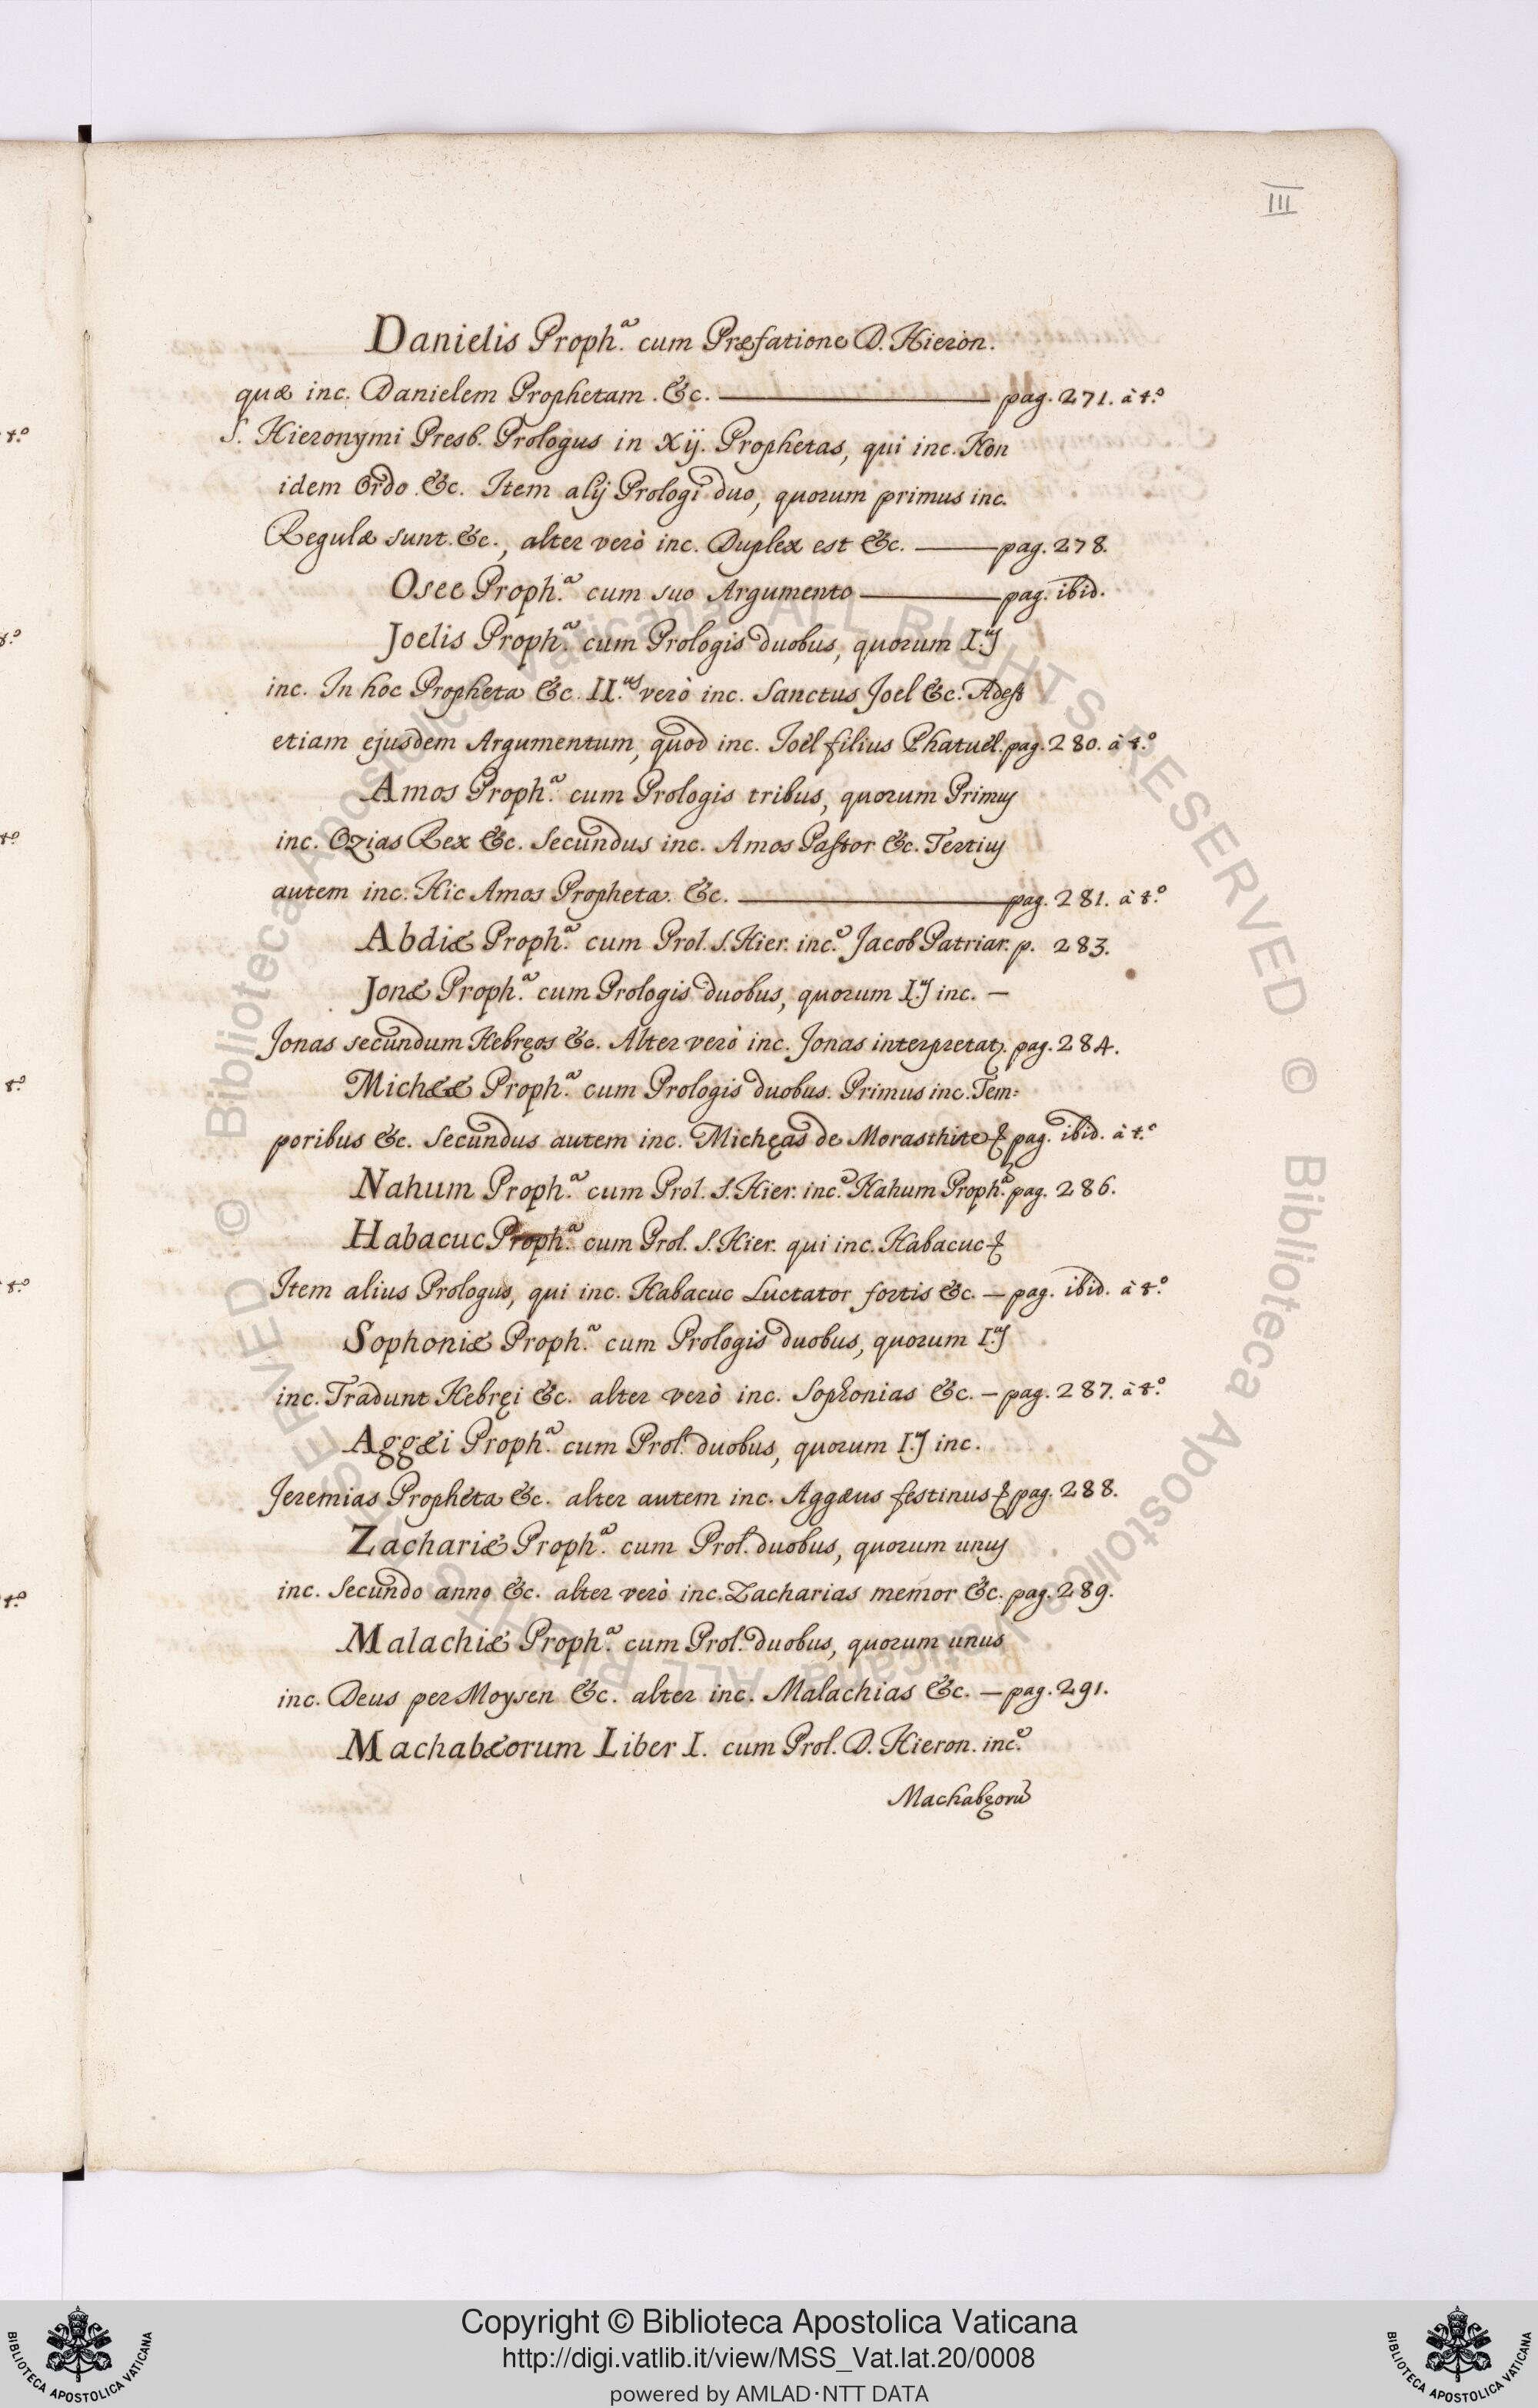 III
Danielis Proph.ª cum Præfatione D. Hieron.
quæ inc. Danielem Prophetam. &c. — pag. 271. à t.º
S. Hieronymi Presb. Prologus in Xij. Prophetas, qui inc. Non
idem Ordo &c. Item alij Prologi duo, quorum primus inc.
Regulæ sunt. &c., alter verò inc. Duplex est &c. — pag. 278.
Osee Proph.ª cum suo Argumento — pag. ibid.
Joelis Proph.ª cum Prologis duobus, quorum I.us
inc. In hoc Propheta &c. II.us verò inc. Sanctus Joel &c. Adest
etiam ejusdem Argumentum, quod inc. Joël filius Phatuél. pag. 280. à t.º
Amos Proph.ª cum Prologis tribus, quorum Primus
inc. Ozias Rex &c. Secundus inc. Amos Pastor &c. Tertius
autem inc. Hic Amos Propheta. &c. — pag. 281. à t.º
Abdiæ Proph.ª cum Prol. S. Hier. inc.e Jacob Patriar. p. 283.
Jonæ Proph.ª cum Prologis duobus, quorum I.us inc. —
Jonas secundum Hebręos &c. Alter verò inc. Jonas interpretat. pag. 284.
Michææ Proph.ª cum Prologis duobus. Primus inc. Tem=
poribus &c. Secundus autem inc. Michęas de Morasthite & pag. ibid. à t.º
Nahum Proph.ª cum Prol. S. Hier. inc.e Nahum Proph.ª pag. 286.
Habacuc Proph.ª cum Prol. S. Hier. qui inc. Habacuc &
Item alius Prologus, qui inc. Habacuc Luctator fortis &c. — pag. ibid. à t.º
Sophoniæ Proph.ª cum Prologis duobus, quorum I.us
inc. Tradunt Hebręi &c. alter verò inc. Sophonias &c. — pag. 287. à t.º
Aggæi Proph.ª cum Prol. duobus, quorum I.us inc.
Jeremias Propheta &c. alter autem inc. Aggæus festinus & pag. 288.
Zachariæ Proph.ª cum Prol. duobus, quorum unus
inc. Secundo anno &c. alter verò inc. Zacharias memor &c. pag. 289.
Malachiæ Proph.ª cum Prol. duobus, quorum unus
inc. Deus per Moysen &c. alter inc. Malachias &c. — pag. 291.
Machabæorum Liber I. cum Prol. D. Hieron. inc.e
Machabęorũ
© Biblioteca Apostolica Vaticana ALL RIGHTS RESERVED © Biblioteca Apostolica Vaticana ALL RIGHTS RESERVED
Copyright © Biblioteca Apostolica Vaticana
http://digi.vatlib.it/view/MSS_Vat.lat.20/0008
powered by AMLAD·NTT DATA
BIBLIOTECA APOSTOLICA VATICANA
BIBLIOTECA APOSTOLICA VATICANA